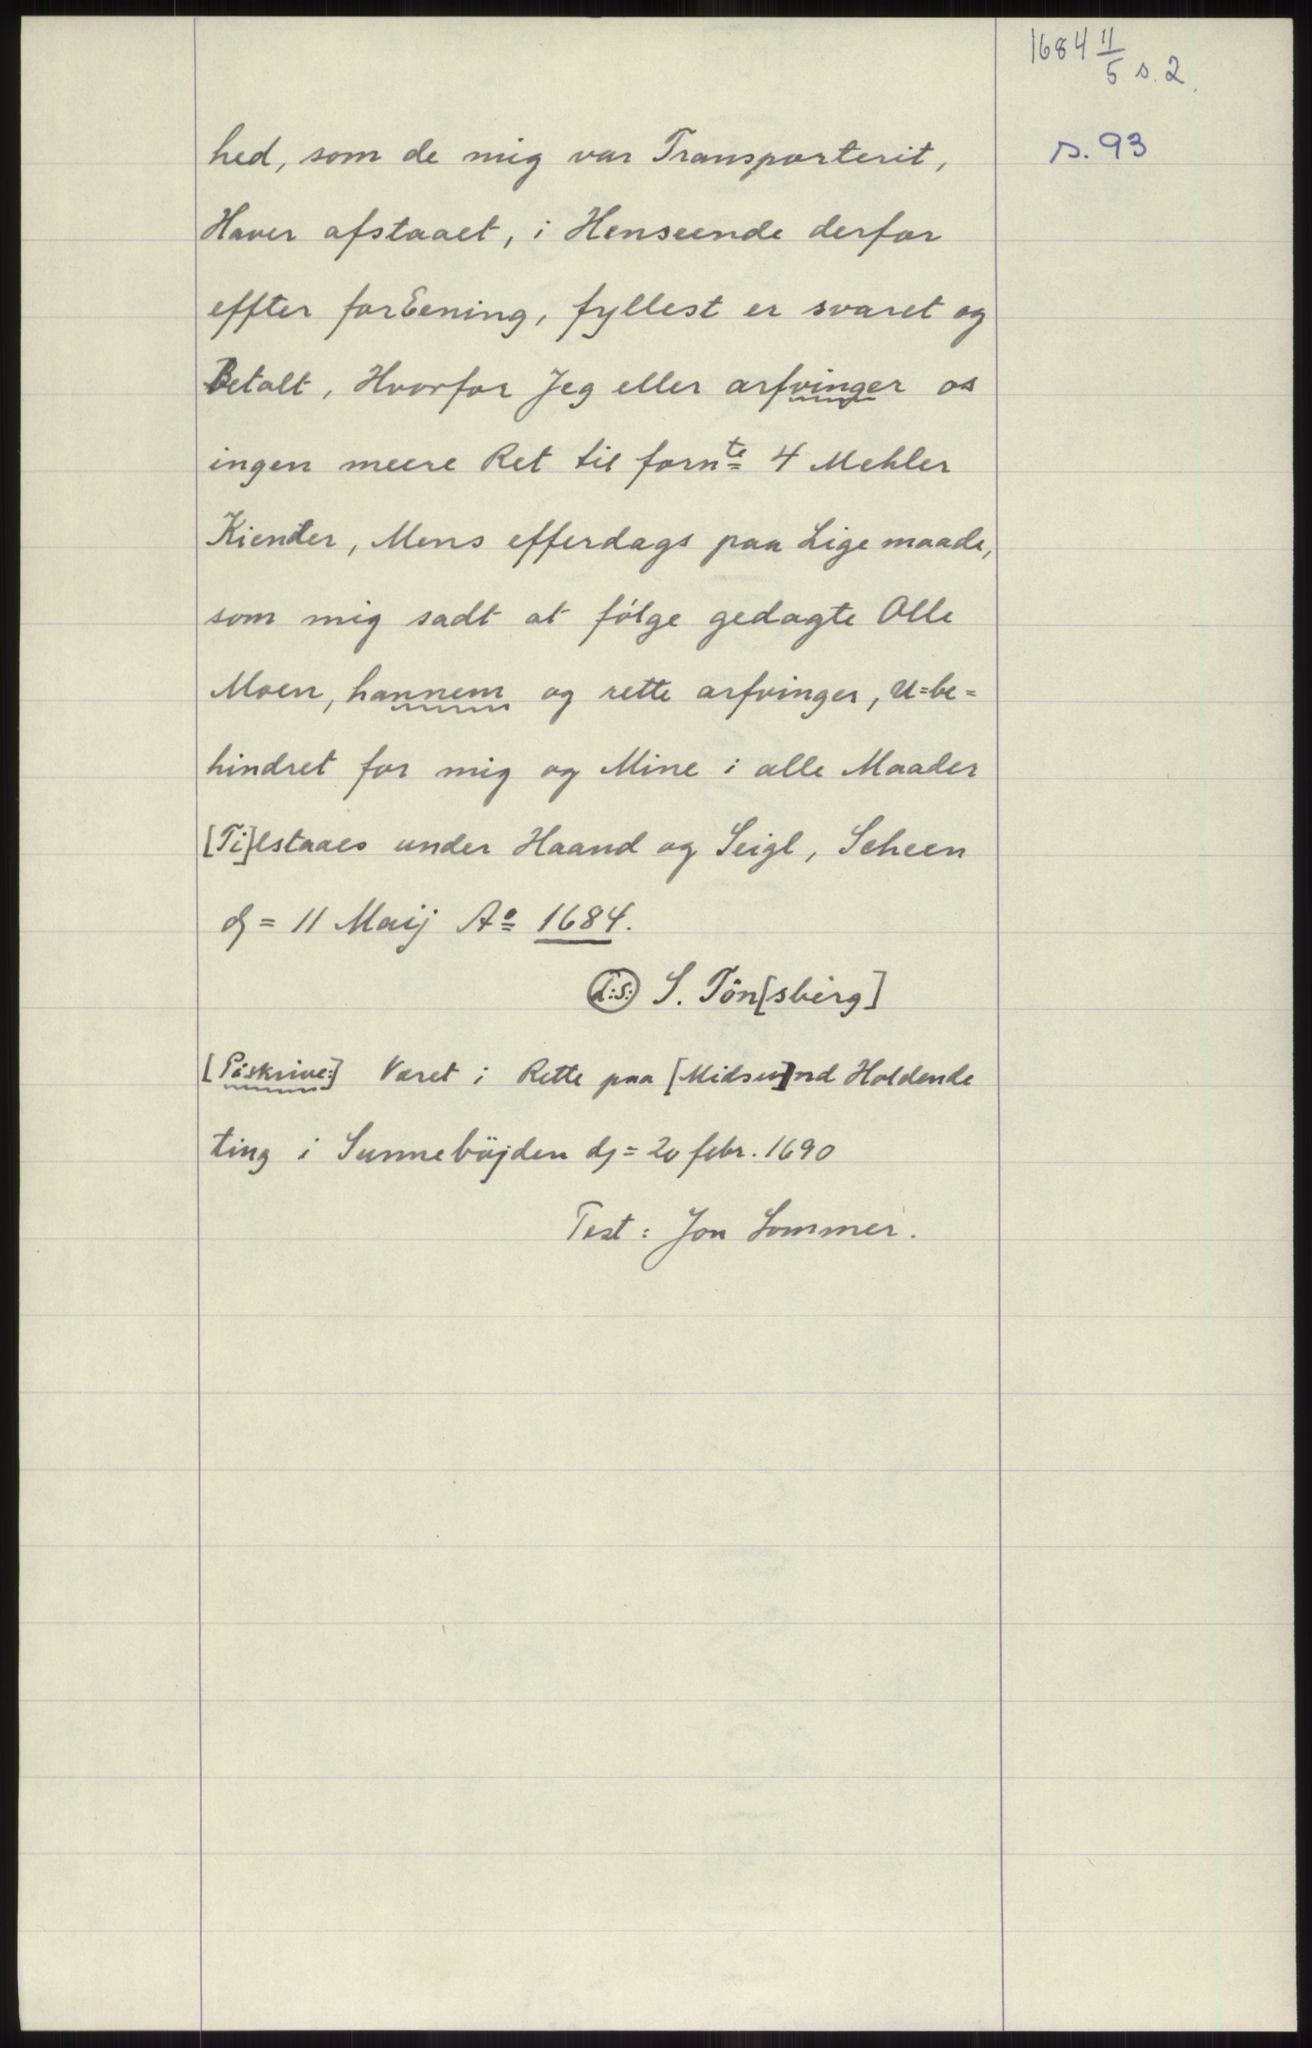 1684 11/5 s. 2.
s. 93
hed, som de mig var Transporterit,
Haver afstaaet, i Henseende derfor
effter forEening, fyllest er svaret og
Betalt, Hvorfor Jeg eller arfvinger os
ingen meere Ret til fornte 4 Mehler
Kiender, Mens efferdags paa Lige maade,
som mig sadt at følge gedagte Olle
Moen, hannem og rette arfvinger, U=be=
hindret for mig og Mine i alle Maader
[Ti]lstaaes under Haand og Seigl, Scheen
dj = 11 Maij Ao = 1684.
L:S: S. Tøn[sberg]
[Påskrive:] Været i Rette paa [Midsu]nd Holdende
ting i Sunnebøjden dj = 20 febr. 1690
Test: Jon Sommer.